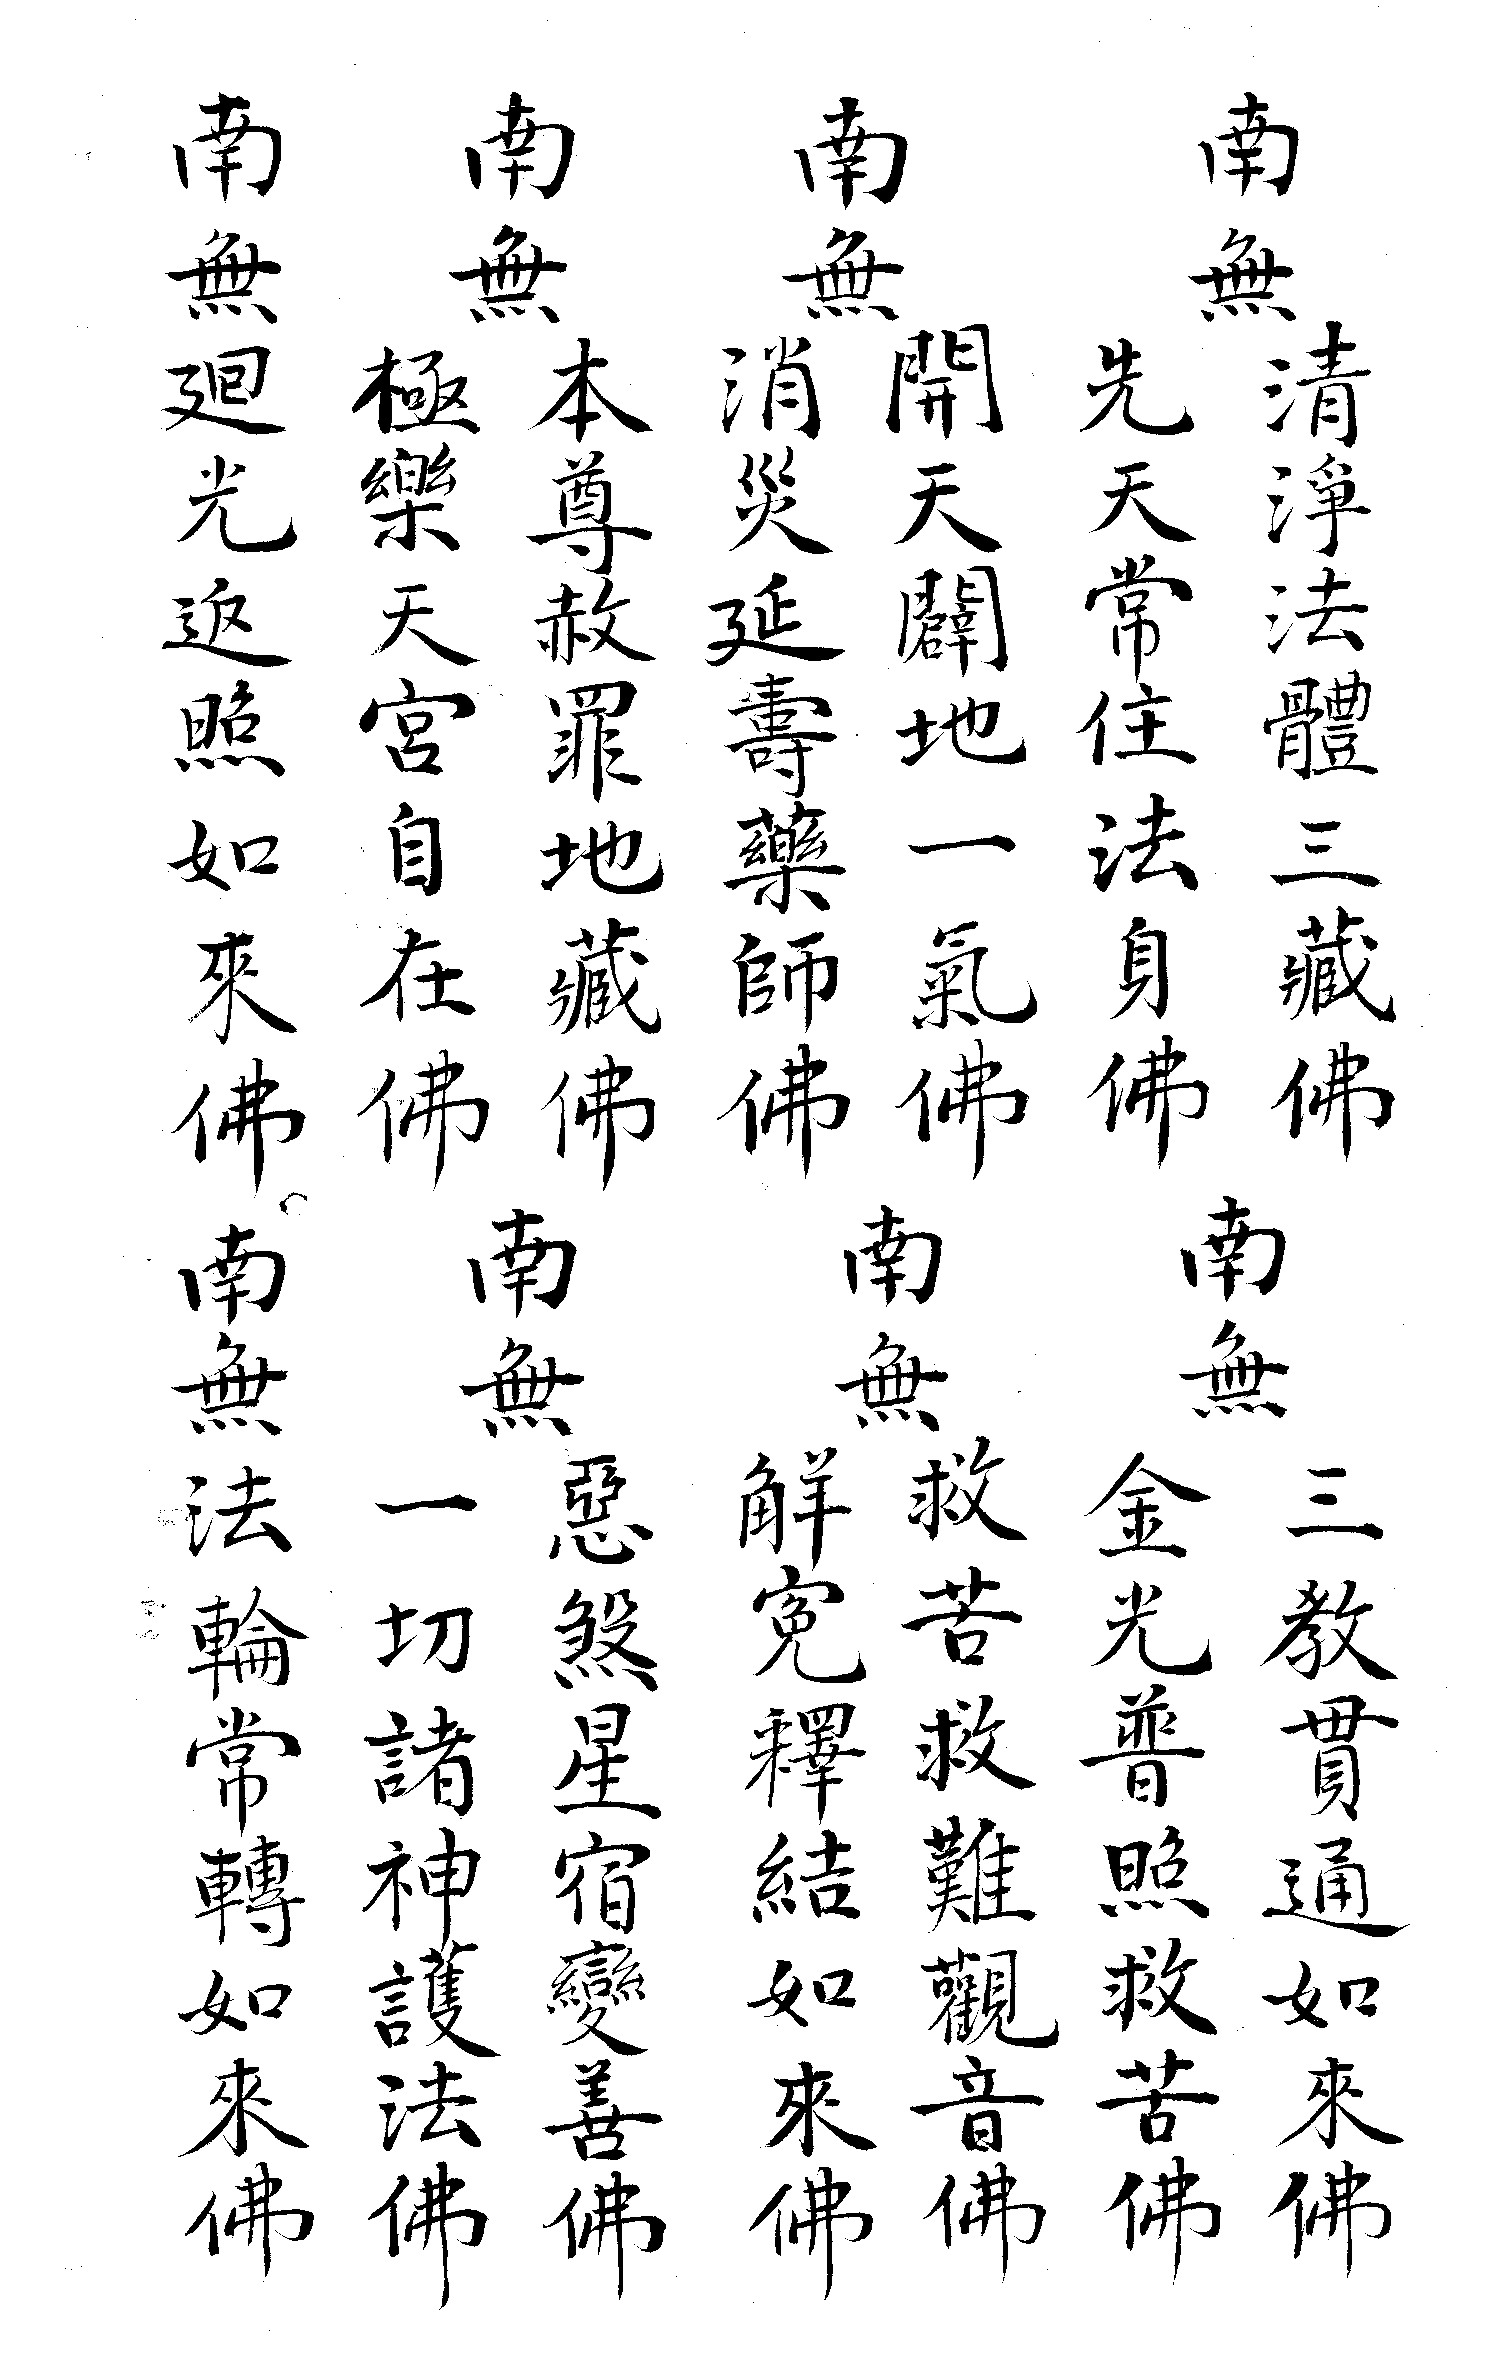 南無
清淨法體三藏佛
先天常住法身佛
南無
開天闢地一氣佛
消災延壽藥師佛
南無
本尊赦罪地藏佛
極樂天宮自在佛
南無廻光返照如來佛
南無
三教貫通如來佛
金光普照救苦佛
南無
救苦救難觀音佛
解冤釋結如來佛
南無
惡煞星宿變善佛
一切諸神護法佛
南無法輪常轉如來佛